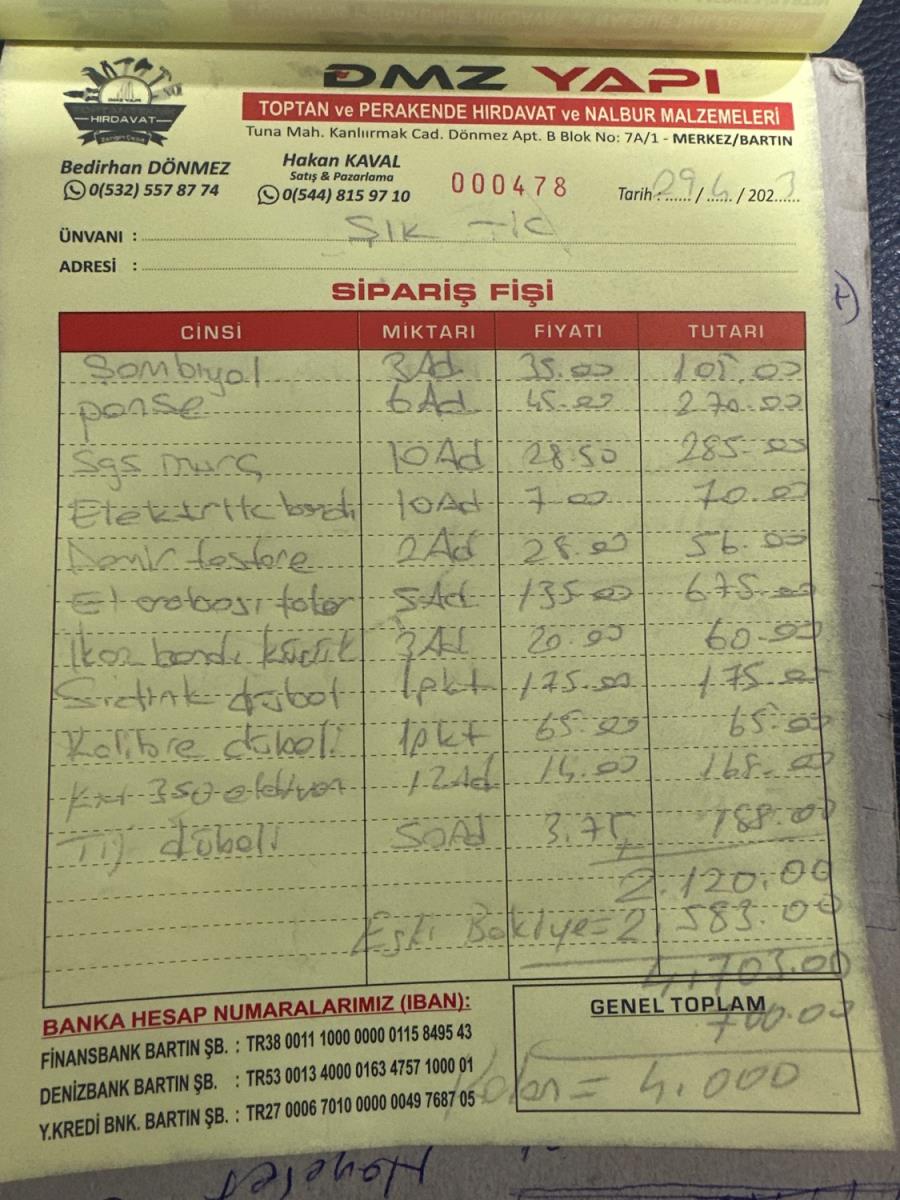 DMZ YAPI
HIRDAVAT
TOPTAN ve PERAKENDE HIRDAVAT ve NALBUR MALZEMELERİ
Tuna Mah. Kanlıırmak Cad. Dönmez Apt. B Blok No: 7A/1 - MERKEZ/BARTIN
Bedirhan DÖNMEZ
0(532) 557 87 74
Hakan KAVAL
Satış & Pazarlama
0(544) 815 97 10
000478
Tarih : 29 / 4 / 2023
ÜNVANI : ŞIK TİC
ADRESİ :
SİPARİŞ FİŞİ
CİNSİ MİKTARI FİYATI TUTARI
Şombiyol 3 Ad 35.00 105.00
panse 6 Ad 45.00 270.00
Sgs murç 10 Ad 28.50 285.00
Elektrik bandı 10 Ad 7.00 70.00
Demir testere 2 Ad 28.00 56.00
El arabası teker 5 Ad 135.00 675.00
İkaz bandı küçük 3 Ad 20.00 60.00
dübel 1 pkt 175.00 175.00
Kalibre dübeli 1 pkt 65.00 65.00
350 12 Ad 14.00 168.00
Tij dübeli 50 Ad 3.75 188.00
2.120.00
Eski Bakiye = 2.583.00
4.703.00
BANKA HESAP NUMARALARIMIZ (IBAN):
GENEL TOPLAM
700.00
FİNANSBANK BARTIN ŞB. : TR38 0011 1000 0000 0115 8495 43
DENİZBANK BARTIN ŞB. : TR53 0013 4000 0163 4757 1000 01
Kalan = 4.000
Y.KREDİ BNK. BARTIN ŞB. : TR27 0006 7010 0000 0049 7687 05